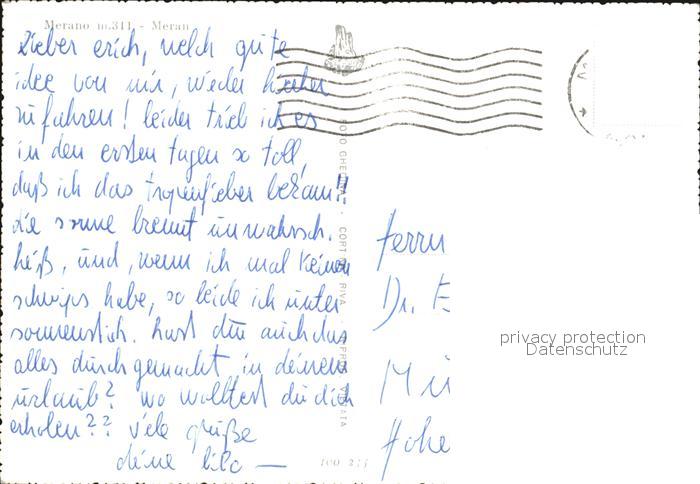 Merano m.311 - Meran
Lieber erich, welch gute
idee von mir, wieder hieher
zu fahren! leider trieb ich es
in den ersten tagen so toll,
daß ich das tropenfieber bekam!!
die sonne brennt unwahrsch.
heiß, und, wenn ich mal keinen
schwips habe, so leide ich unter
sonnenstich. hast du auch das
alles durchgemacht in deinem
urlaub? wo wolltest du dich
erholen?? viele grüße
deine lilo —
FOTO GHEDINA - CORT. RIVA
Herrn
Dr. E
Mü
Hohe
privacy protection
Datenschutz